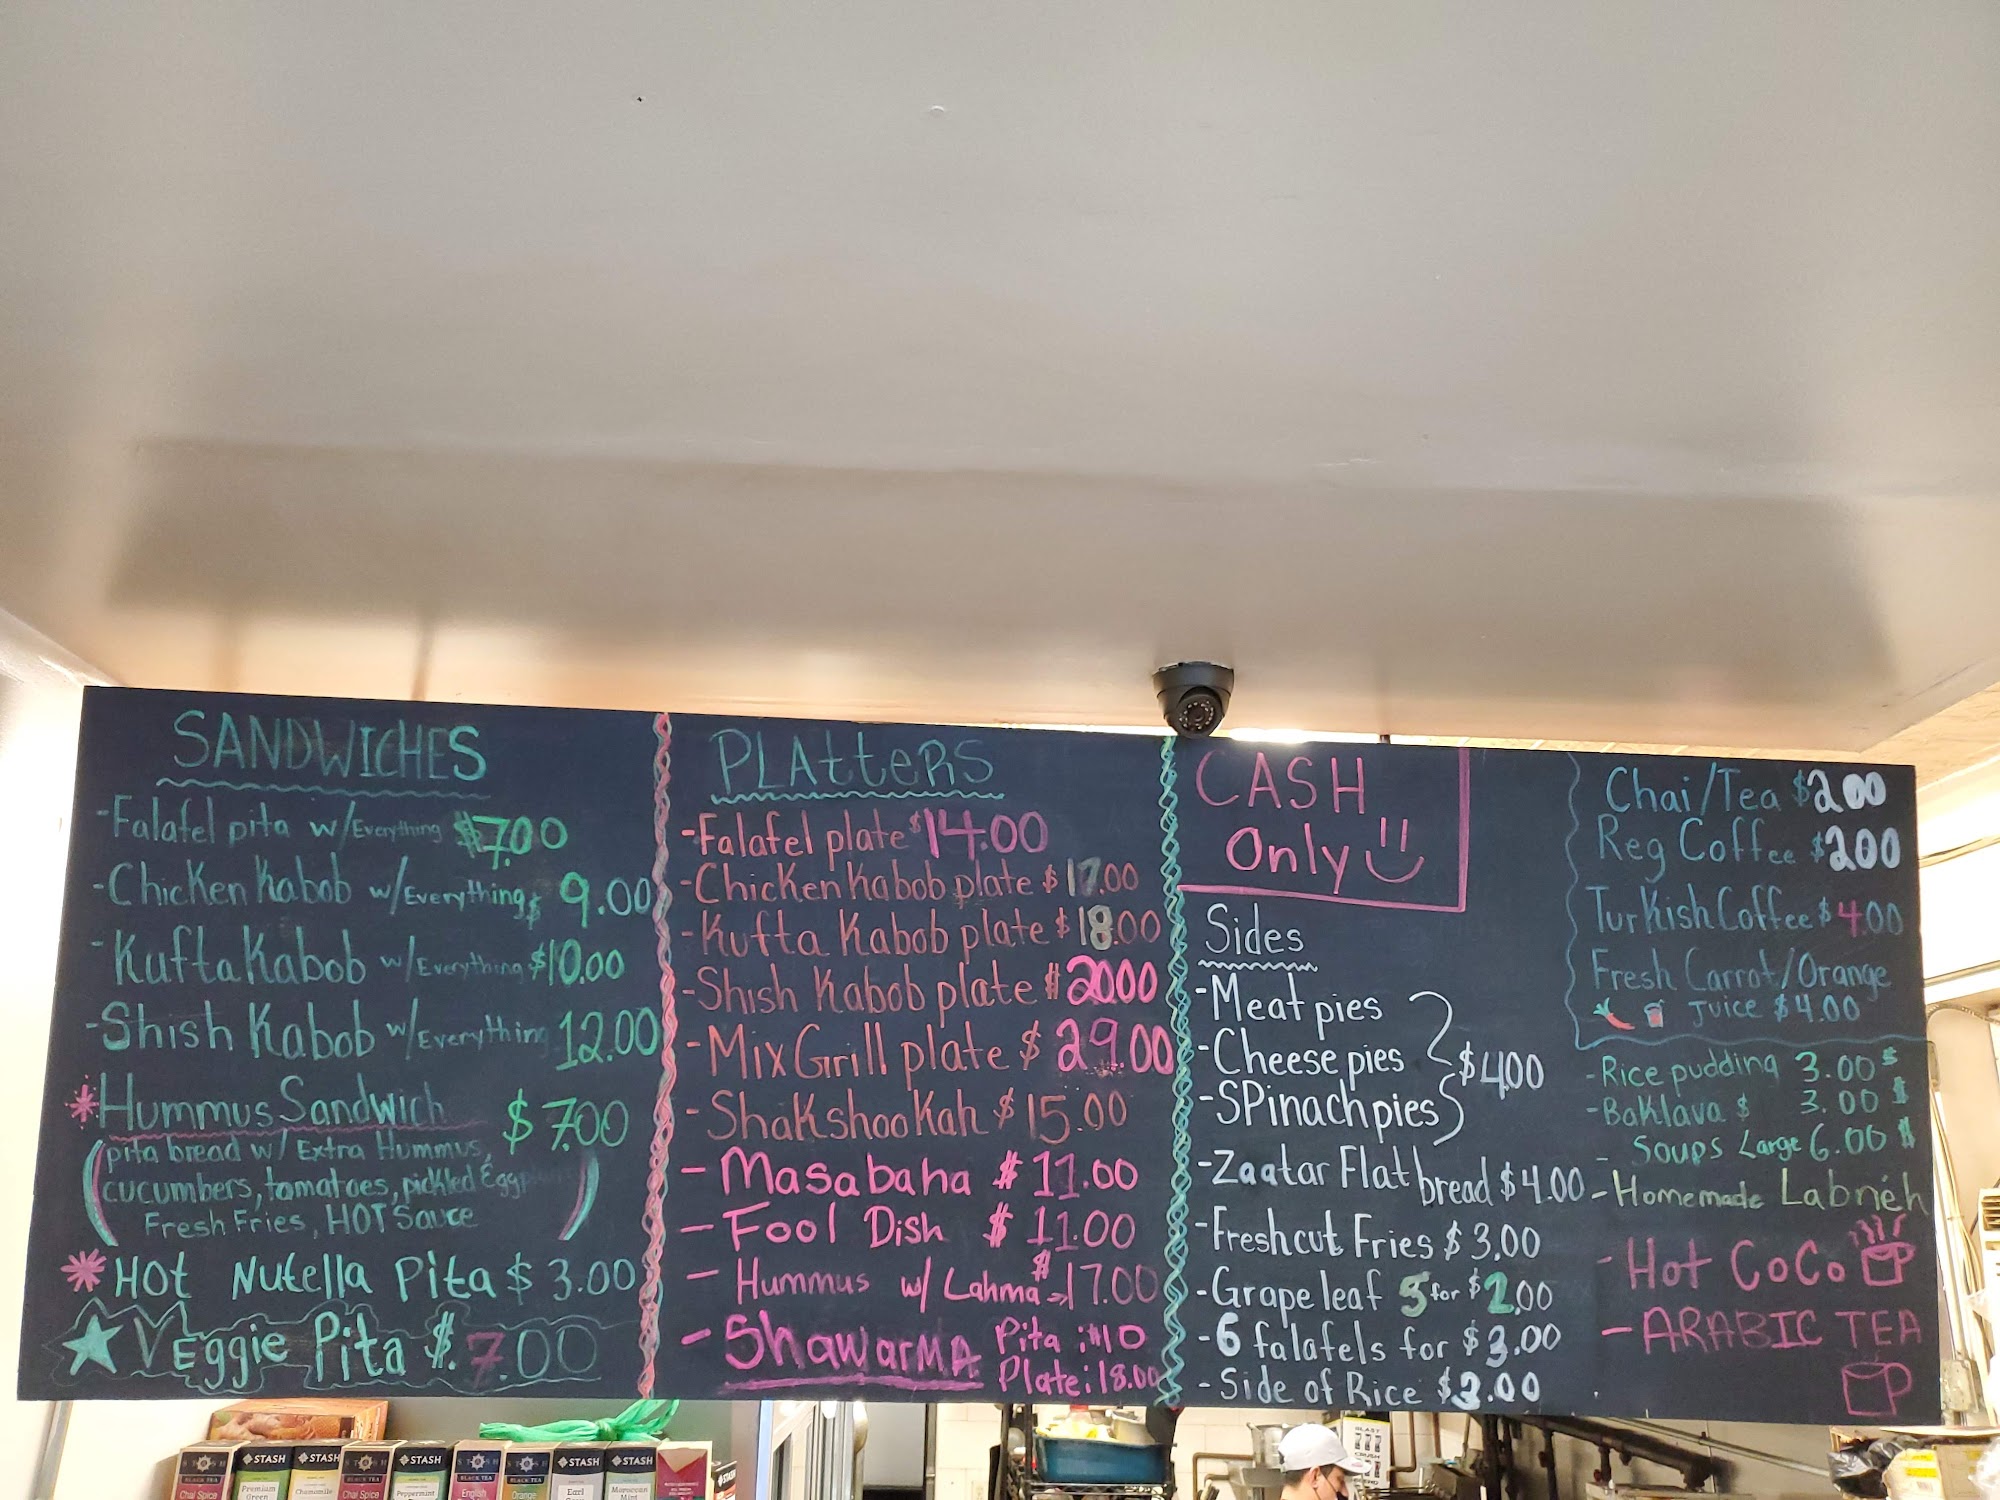 SANDWICHES
-Falafel pita w/Everything $7.00
-Chicken Kabob w/Everything $9.00
-Kufta Kabob w/Everything $10.00
-Shish Kabob w/Everything 12.00
*Hummus Sandwich $7.00
(pita bread w/ Extra Hummus,
cucumbers, tomatoes, pickled
Fresh Fries, HOT Sauce)
*HOT Nutella Pita $3.00
★Veggie Pita $.7.00
PLAtteRS
-Falafel plate $14.00
-Chicken Kabob plate $17.00
-Kufta Kabob plate $18.00
-Shish Kabob plate $2000
-Mix Grill plate $29.00
-ShakshooKah $15.00
-Masabaha $11.00
-Fool Dish $11.00
-Hummus w/ Lahma $17.00
-ShawarMA Pita: $10
Plate: 18.00
CASH
Only
Sides
-Meat pies
-Cheese pies $4.00
-SPinach pies
-Zaatar Flat bread $4.00
-Fresh cut Fries $3.00
-Grape leaf 5 for $2.00
-6 falafels for $3.00
-Side of Rice $3.00
Chai/Tea $200
Reg Coffee $200
Turkish Coffee $4.00
Fresh Carrot/Orange
Juice $4.00
-Rice pudding 3.00$
-Baklava $ 3.00$
- Soups Large 6.00$
-Homemade Labneh
-Hot CoCo
-ARABIC TEA
STASH
STASH
STASH
STASH
STASH
STASH
BLACK TEA
Chai Spice
Premium
Green
Chamomile
BLACK TEA
Chai Spice
Peppermint
BLACK TEA
English
BLACK TEA
Orange
Earl
Moroccan
Mint